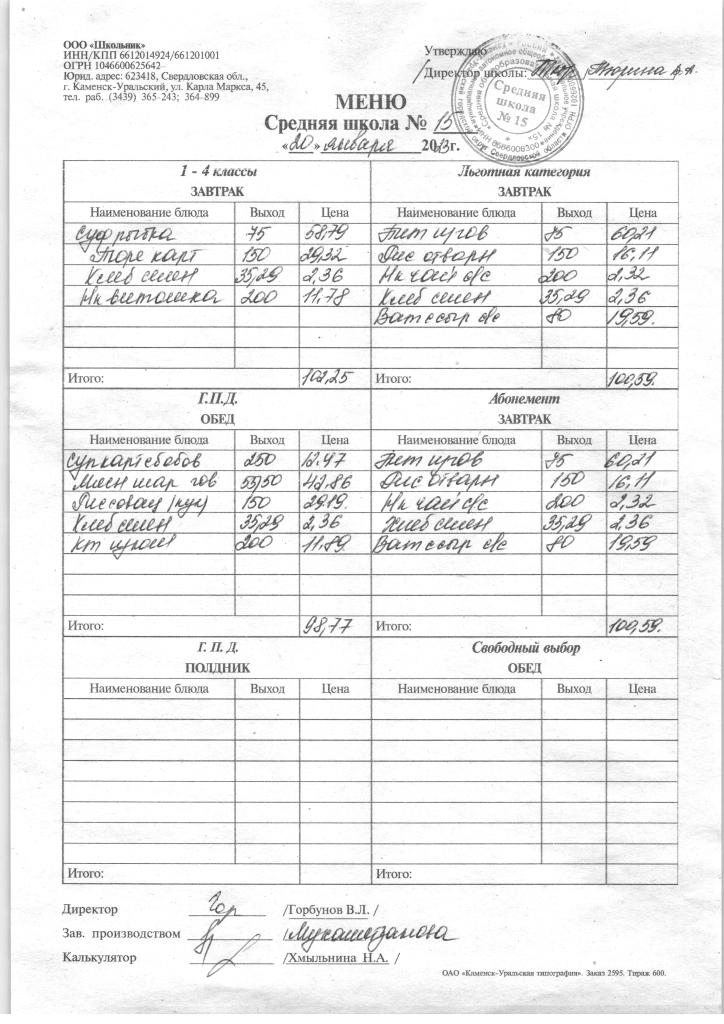 ООО «Школьник»
ИНН/КПП 6612014924/661201001
ОГРН 1046600625642
Юрид. адрес: 623418, Свердловская обл.,
г. Каменск-Уральский, ул. Карла Маркса, 45,
тел. раб. (3439) 365-243; 364-899
Утверждаю
Директор школы: Тюрина
Средняя школа № 15
МЕНЮ
Средняя школа № 15
«20» января 20 г.
1 - 4 классы
ЗАВТРАК
Наименование блюда Выход Цена
Суф рыбка 75 58,79
Пюре карт 150 29,32
Хлеб 35,29 2,36
Нк витошка 200 11,78
Итого: 102,25
Льготная категория
ЗАВТРАК
Наименование блюда Выход Цена
75 60,21
Рис отварн 150 16,11
Нк чай с/с 200 2,32
Хлеб 35,29 2,36
Ват с сыр с/с 80 19,59.
Итого: 100,59.
Г.П.Д.
ОБЕД
Наименование блюда Выход Цена
Суп карт с бобов 250 12,47
гов 53/50 42,86
150 29,19.
Хлеб 35,29 2,36
200 11,89.
Итого: 98,77
Абонемент
ЗАВТРАК
Наименование блюда Выход Цена
75 60,21
Рис отварн 150 16,11
Нк чай с/с 200 2,32
Хлеб 35,29 2,36
Ват с сыр с/с 80 19,59
Итого: 100,59.
Г. П. Д.
ПОЛДНИК
Наименование блюда Выход Цена
Итого:
Свободный выбор
ОБЕД
Наименование блюда Выход Цена
Итого:
Директор /Горбунов В.Л. /
Зав. производством /
Калькулятор /Хмыльнина Н.А. /
ОАО «Каменск-Уральская типография». Заказ 2595. Тираж 600.